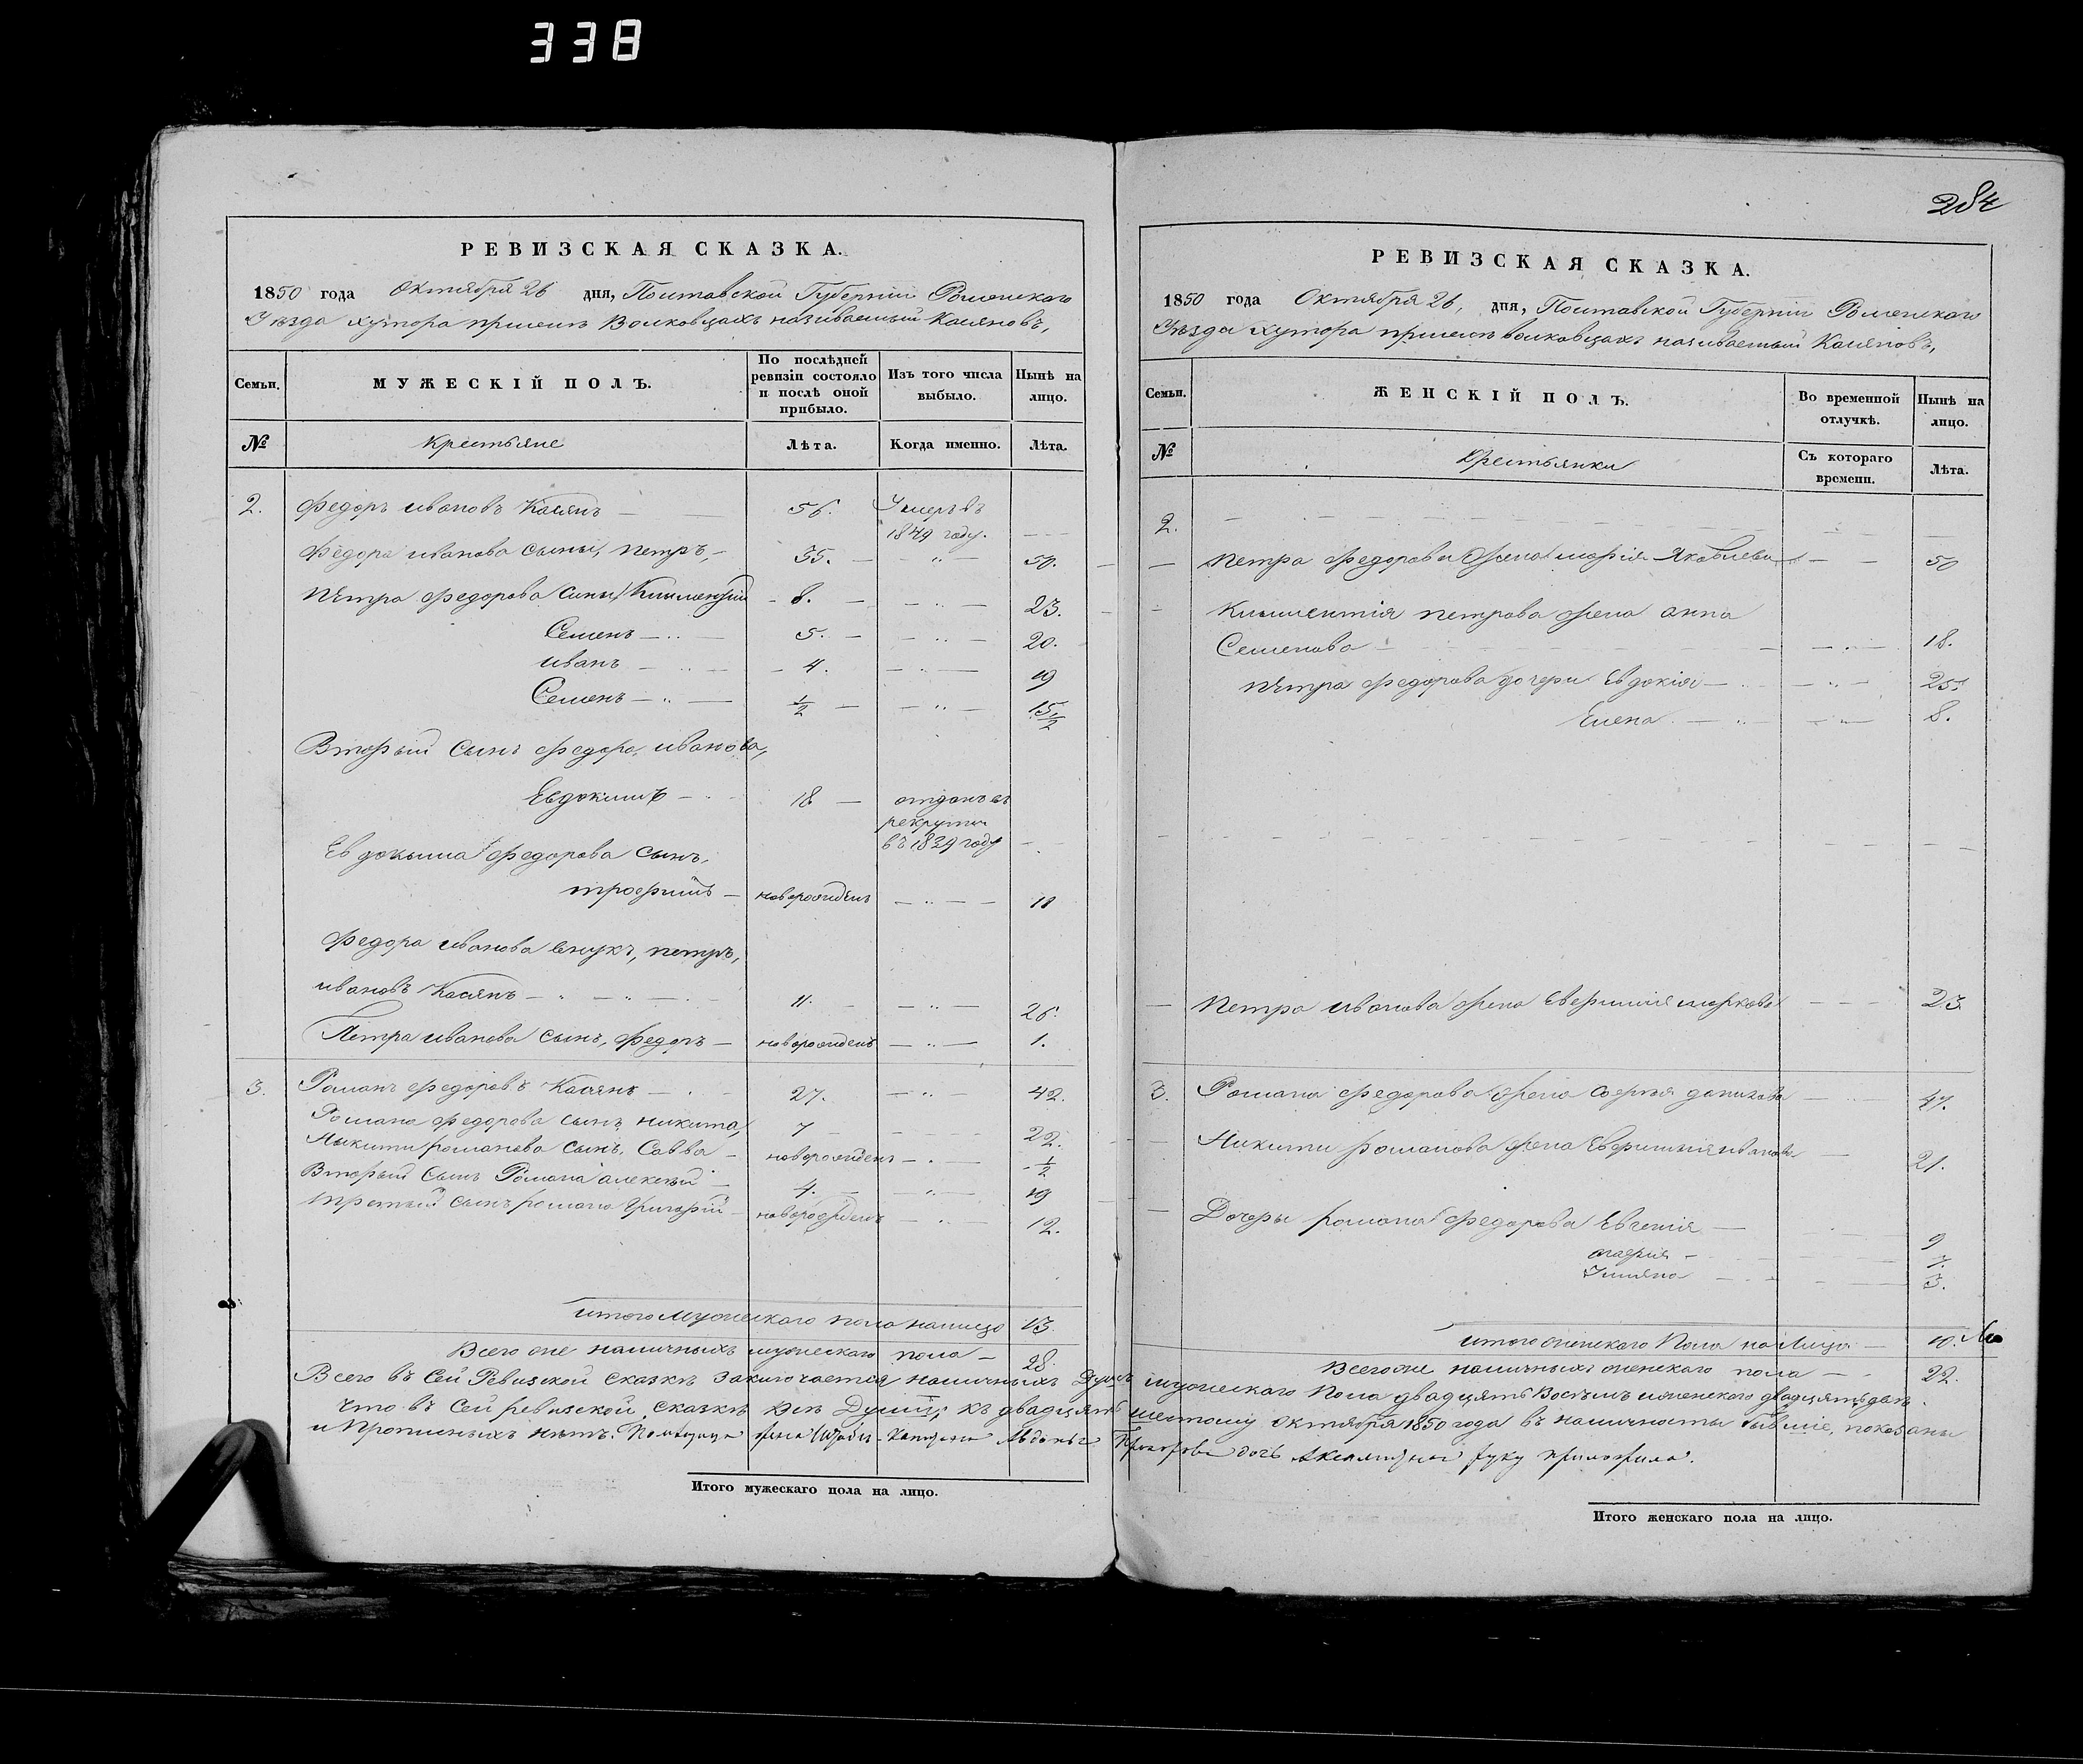 338
РЕВИЗСКАЯ СКАЗКА.
1850 года Октября 26 дня, Полтавской Губернiи Роменскаго
Уѣзда хутора присемъ Волковцахъ называемый Касяновъ,
Семьи.
МУЖЕСКІЙ ПОЛЪ.
По послѣдней ревизіи состояло и послѣ оной прибыло.
Изъ того числа выбыло.
Нынѣ на лицо.
№
Крестьяне
Лѣта.
Когда именно.
Лѣта.
2. Федоръ ивановъ Касянъ — 56. Умеръ въ
1849 году.
Федора иванова сыны, петръ, — 35. — 50.
Петра федорова сыны Климентiй — 8. — 23.
Семенъ — 5. — 20.
иванъ — 4. — 19
Семенъ — 1/2 — 15 1/2
Вторый сынъ федора иванова,
Евдокимъ — 18 — отданъ въ
рекруты
въ 1839 году
Евдокима федорова сынъ,
трофимъ — новорожденъ — 11
Федора иванова внукъ, петръ,
ивановъ Касянъ — 11. — 26.
Петра иванова сынъ, федоръ — новорожденъ — 1.
3. Романъ федоровъ Касянъ — 27. — 42.
Романа федорова сынъ никита, 7 — 22.
Никити романова сынъ, Савва — новорожденъ — 1/2
Вторый сынъ Романа алексѣй — 4. — 19
третый сынъ романа Григорiй — новорожденъ — 12.
итого мужескаго пола налицо 13.
Всего же наличныхъ мужескаго пола — 28.
Итого мужескаго пола на лицо.
284
РЕВИЗСКАЯ СКАЗКА.
1850 года Октября 26, дня, Полтавской Губернiи Роменскаго
Уѣзда хутора присемъ волковцахъ называемый Касяновъ,
Семьи.
ЖЕНСКІЙ ПОЛЪ.
Во временной отлучкѣ.
Нынѣ на лицо.
№
Крестьянки
Съ котораго времени.
Лѣта.
2.
Петра федорова жена марiя Яковлева — 50
Климентiя петрова жена анна
Семенова — 18.
Петра федорова дочери Евдокiя — 25.
Елена — 8.
Петра иванова жена Евфимiя маркова — 23
3. Романа федорова жена софiя данилова — 47.
Никити романова жена Евфимiя иванова — 21.
Дочеры романа федорова Евгенiя — 9
марiя — 7.
Улияна — 3.
итого женскаго Пола на Лицо — 10.
Всегоже наличныхъ женскаго пола — 22.
Всего въ Сей Ревизской сказкѣ заключается наличныхъ Душъ мужескаго Пола двадцять Восемъ и женскаго двадцятьдвѣ.
что въ Сей ревизской сказкѣ всѣ Души, къ двадцять шестому Октября 1850 года въ наличносты бывшiе, показаны
и Прописныхъ нѣтъ. Помѣщица жена Штабсъ-Капитана Авдотья Прохорова дочь руку приложила.
Итого женскаго пола на лицо.